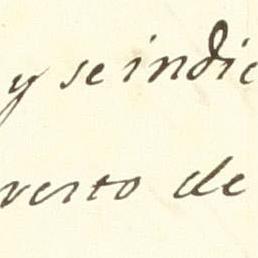 y se indic
verto de